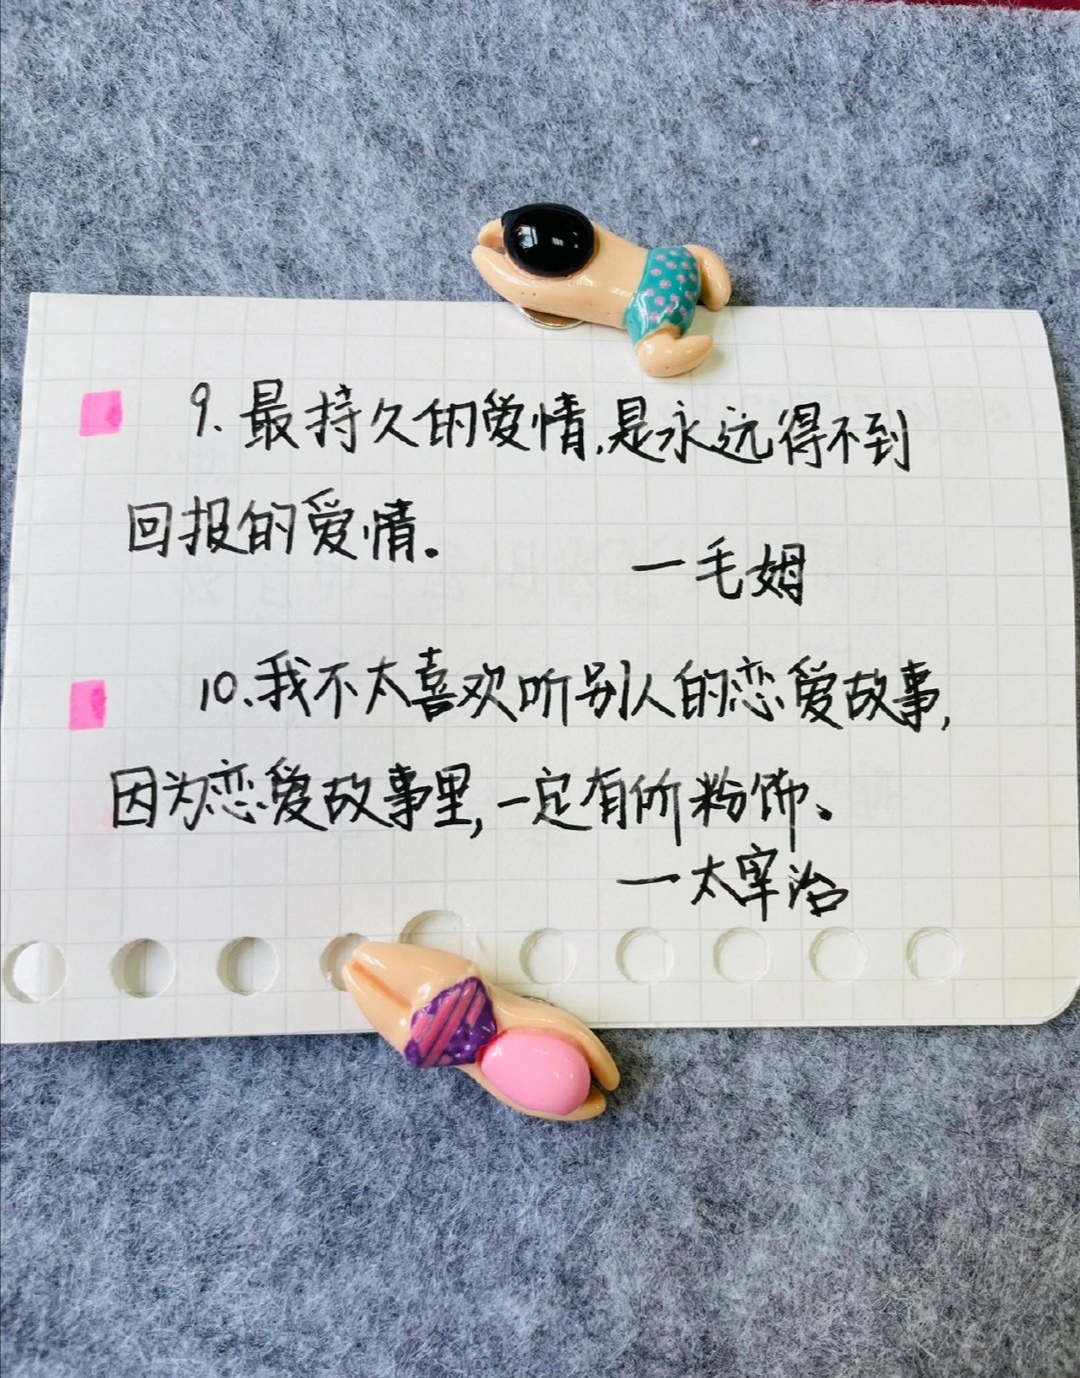 9. 最持久的爱情,是永远得不到
回报的爱情。
一毛姆
10.我不太喜欢听别人的恋爱故事,
因为恋爱故事里,一定有所粉饰。
一太宰治